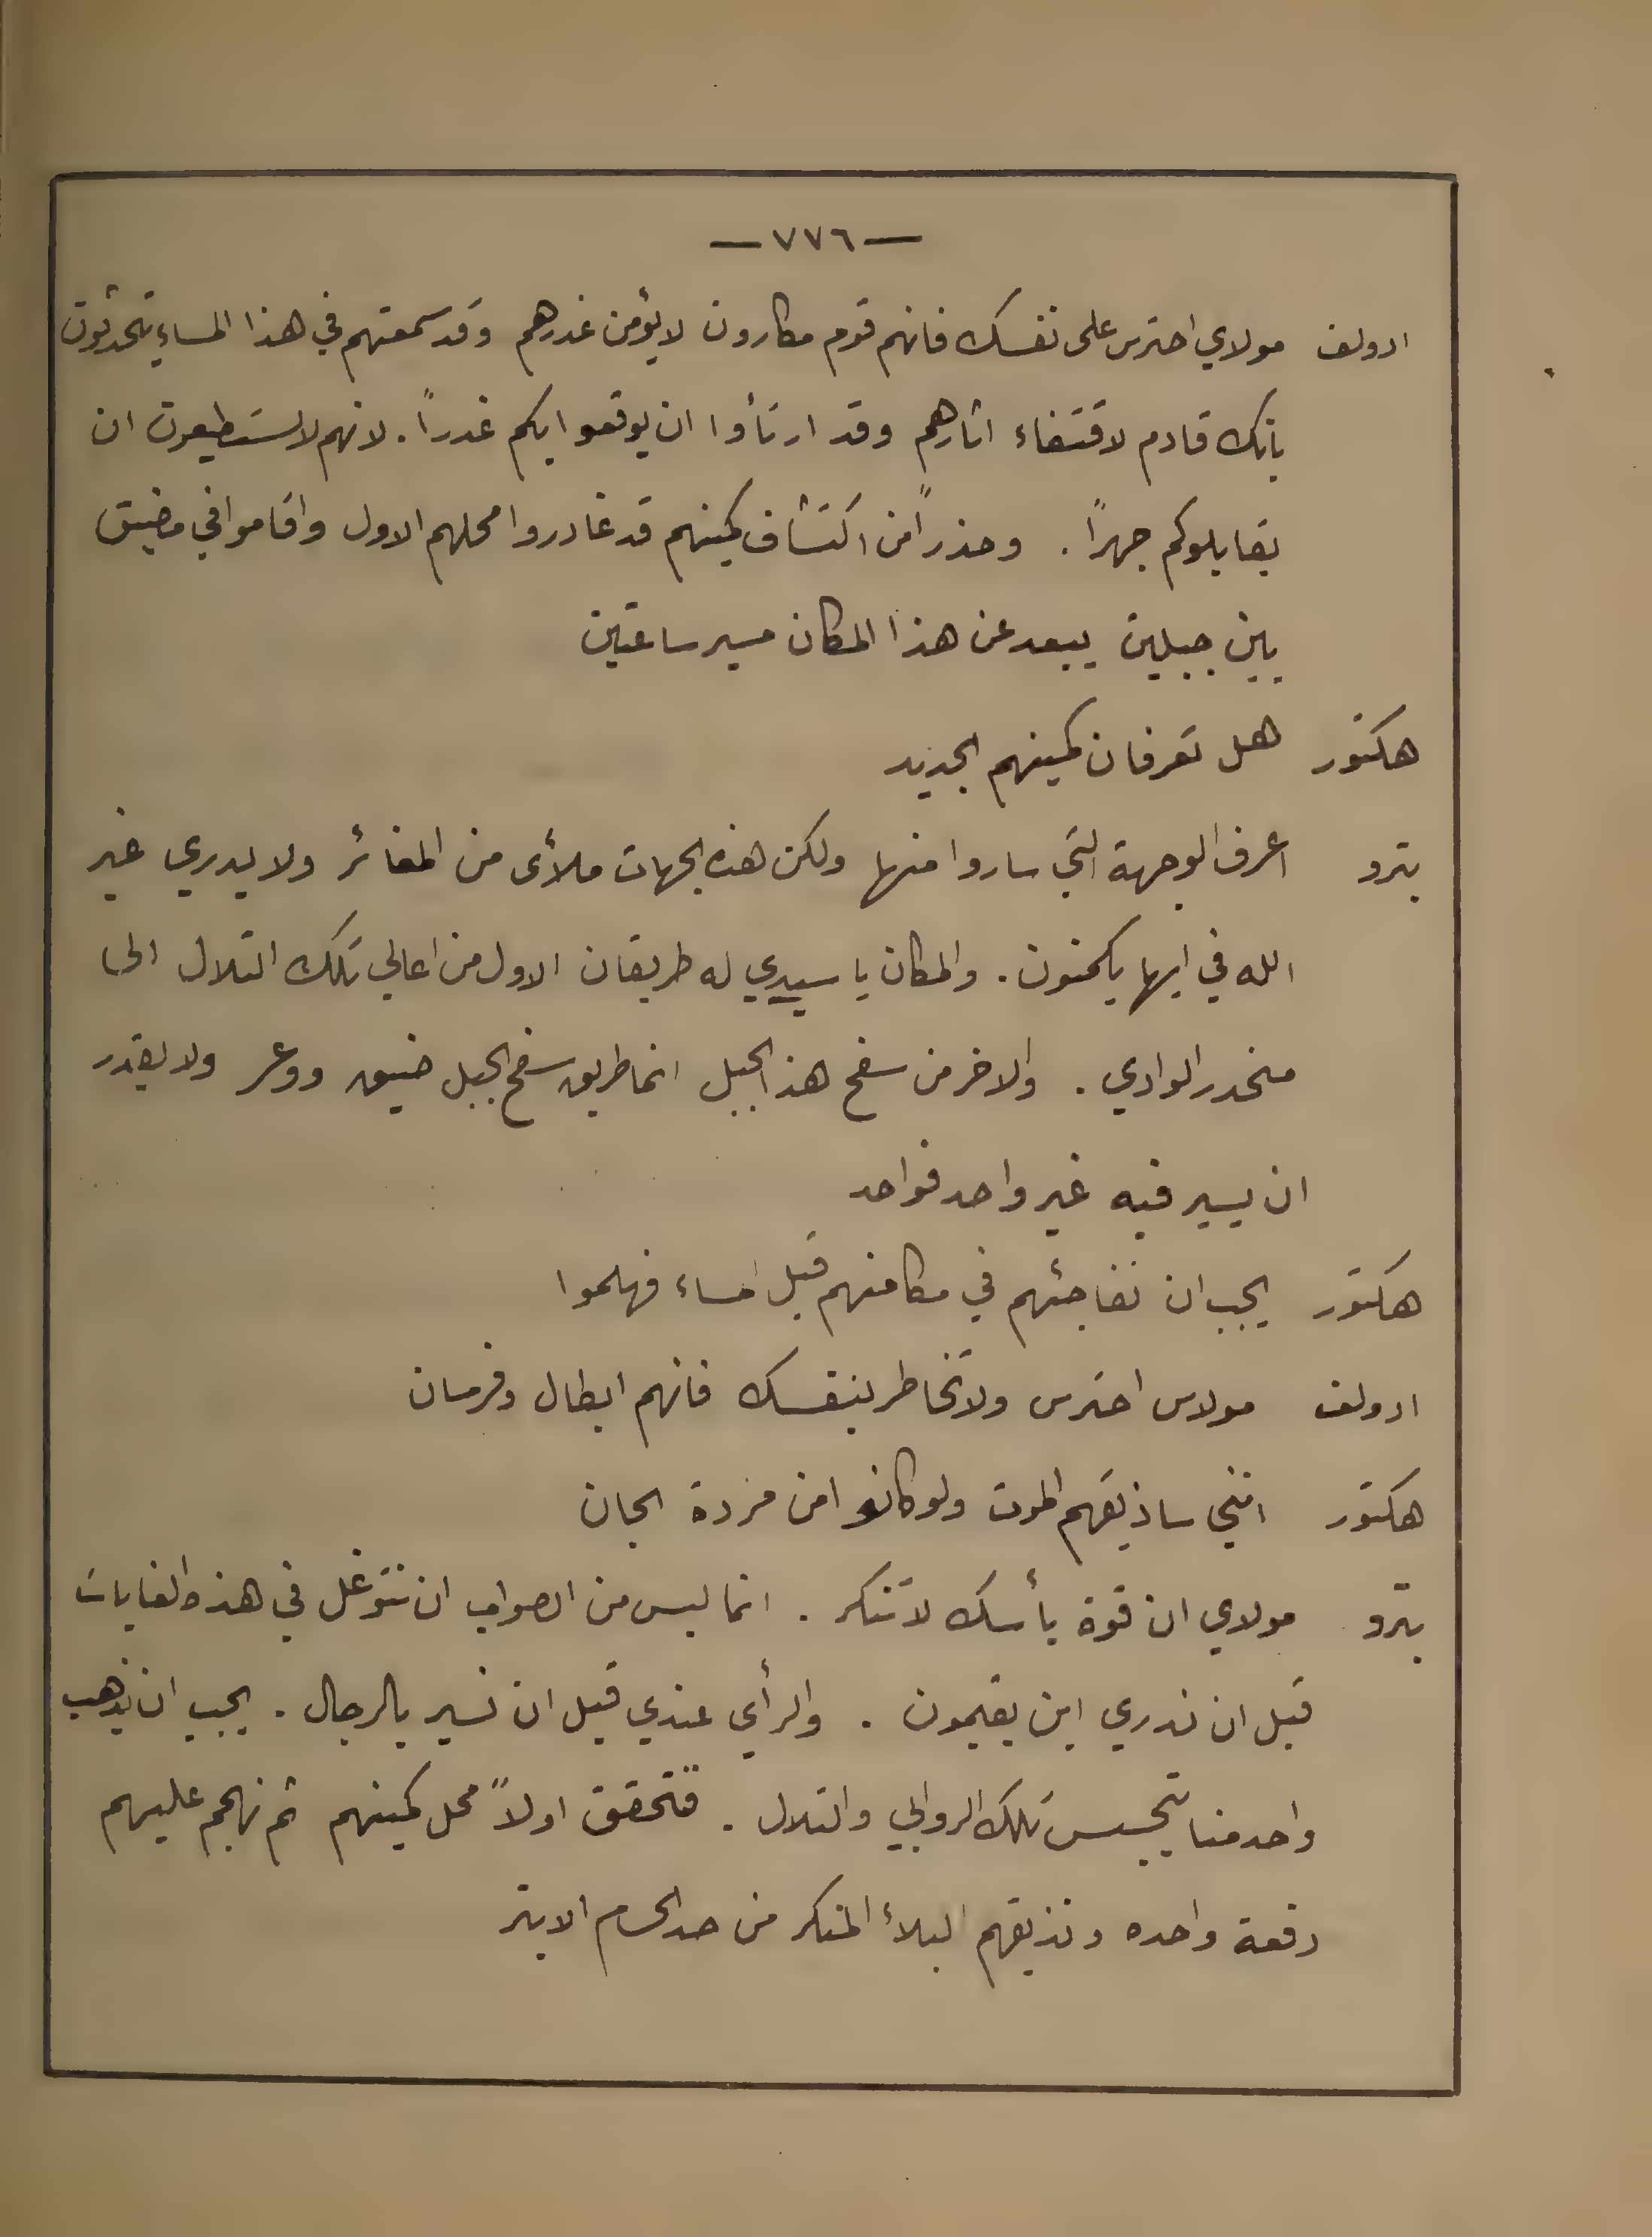 — ٧٧٦ —
ادولف مولاي احترس على نفسك فانهم قوم مكارون لا يؤمن غدرهم وقد سمعتهم في هذا المساء يتحدثون
بانك قادم لاقتفاء اثارهم وقد ارتأوا ان يوقعوا بكم غدراً . لانهم لا يستطيعون ان
يقابلوكم جهراً . وحذراً من اكتشاف كمينهم قد غادروا محلهم الاول واقاموا في مضيق
بين جبلين يبعد عن هذا المكان مسير ساعتين
هكتور هل تعرفان كمينهم الجديد
بترو اعرف الوجهة التي ساروا منها ولكن هذه الجهات ملأى من المغائر ولا يدري غير
الله في ايها يكمنون . والمكان يا سيدي له طريقان الاول من اعالي تلك التلال الى
منحدر الوادي . والاخر من سفح هذا الجبل انما طريق سفح الجبل ضيق ووعر ولا يقدر
ان يسير فيه غير واحد فواحد
هكتور يجب ان نفاجئهم في مكامنهم قبل المساء فهلموا
ادولف مولاي احترس ولا تخاطر بنفسك فانهم ابطال وفرسان
هكتور انني ساذيقهم الموت ولو كانوا من مردة الجان
بترو مولاي ان قوة بأسك لا تنكر . انما ليس من الصواب ان نتوغل في هذه الغابات
قبل ان ندري اين يقيمون . والرأي عندي قبل ان نسير بالرجال . يجب ان يذهب
واحد منا يتجسس تلك الروابي والتلال . فنتحقق اولاً محل كمينهم ثم نهجم عليهم
دفعة واحده ونذيقهم البلأ المنكر من حد الحسام الابتر